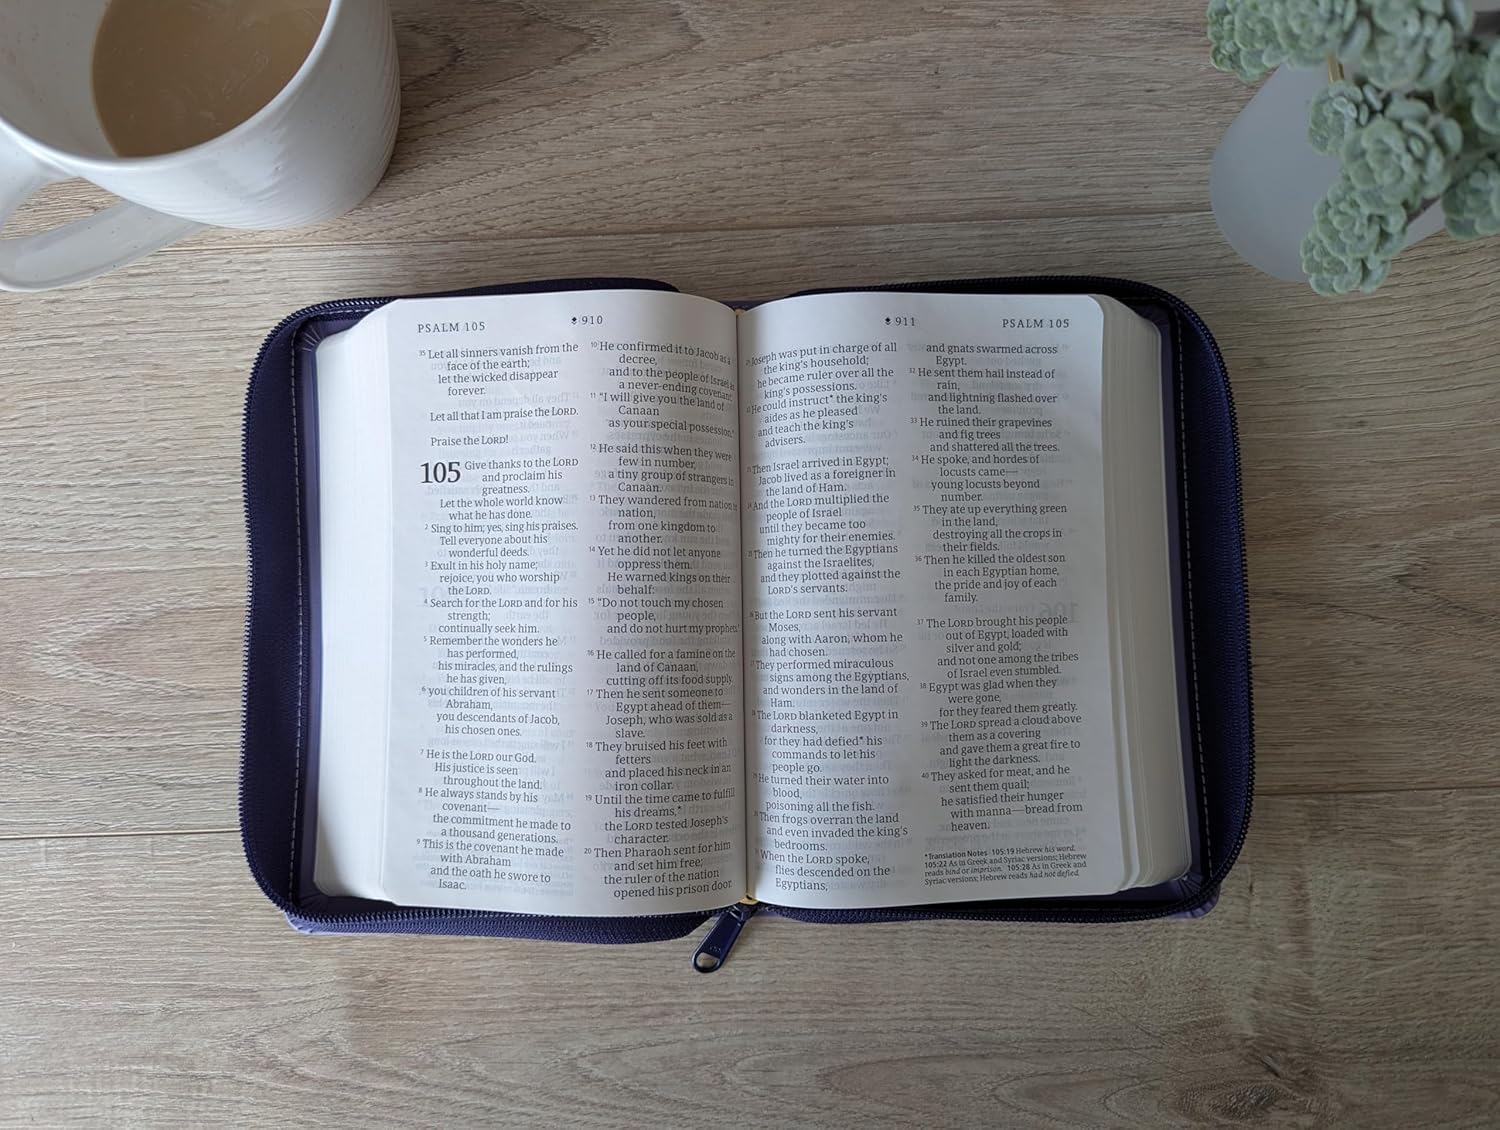 PSALM 105
910
35 Let all sinners vanish from the
face of the earth;
let the wicked disappear
forever.
Let all that I am praise the LORD.
Praise the LORD!
105 Give thanks to the LORD
and proclaim his
greatness.
Let the whole world know
what he has done.
2 Sing to him; yes, sing his praises.
Tell everyone about his
wonderful deeds.
3 Exult in his holy name;
rejoice, you who worship
the LORD.
4 Search for the LORD and for his
strength;
continually seek him.
5 Remember the wonders he
has performed,
his miracles, and the rulings
he has given,
6 you children of his servant
Abraham,
you descendants of Jacob,
his chosen ones.
7 He is the LORD our God.
His justice is seen
throughout the land.
8 He always stands by his
covenant—
the commitment he made to
a thousand generations.
9 This is the covenant he made
with Abraham
and the oath he swore to
Isaac.
10 He confirmed it to Jacob as a
decree,
and to the people of Israel as
a never-ending covenant:
11 "I will give you the land of
Canaan
as your special possession."
12 He said this when they were
few in number,
a tiny group of strangers in
Canaan.
13 They wandered from nation to
nation,
from one kingdom to
another.
14 Yet he did not let anyone
oppress them.
He warned kings on their
behalf:
15 "Do not touch my chosen
people,
and do not hurt my prophets."
16 He called for a famine on the
land of Canaan,
cutting off its food supply.
17 Then he sent someone to
Egypt ahead of them—
Joseph, who was sold as a
slave.
18 They bruised his feet with
fetters
and placed his neck in an
iron collar.
19 Until the time came to fulfill
his dreams,*
the LORD tested Joseph's
character.
20 Then Pharaoh sent for him
and set him free;
the ruler of the nation
opened his prison door.
911
PSALM 105
Joseph was put in charge of all
the king's household;
he became ruler over all the
king's possessions.
He could instruct* the king's
aides as he pleased
and teach the king's
advisers.
Then Israel arrived in Egypt;
Jacob lived as a foreigner in
the land of Ham.
And the LORD multiplied the
people of Israel
until they became too
mighty for their enemies.
Then he turned the Egyptians
against the Israelites,
and they plotted against the
LORD's servants.
But the LORD sent his servant
Moses,
along with Aaron, whom he
had chosen.
They performed miraculous
signs among the Egyptians,
and wonders in the land of
Ham.
The LORD blanketed Egypt in
darkness,
for they had defied* his
commands to let his
people go.
He turned their water into
blood,
poisoning all the fish.
Then frogs overran the land
and even invaded the king's
bedrooms.
When the LORD spoke,
flies descended on the
Egyptians,
and gnats swarmed across
Egypt.
32 He sent them hail instead of
rain,
and lightning flashed over
the land.
33 He ruined their grapevines
and fig trees
and shattered all the trees.
34 He spoke, and hordes of
locusts came—
young locusts beyond
number.
35 They ate up everything green
in the land,
destroying all the crops in
their fields.
36 Then he killed the oldest son
in each Egyptian home,
the pride and joy of each
family.
37 The LORD brought his people
out of Egypt, loaded with
silver and gold;
and not one among the tribes
of Israel even stumbled.
38 Egypt was glad when they
were gone,
for they feared them greatly.
39 The LORD spread a cloud above
them as a covering
and gave them a great fire to
light the darkness.
40 They asked for meat, and he
sent them quail;
he satisfied their hunger
with manna—bread from
heaven.
*Translation Notes 105:19 Hebrew his word.
105:22 As in Greek and Syriac versions; Hebrew
reads bind or imprison. 105:28 As in Greek and
Syriac versions; Hebrew reads had not defied.